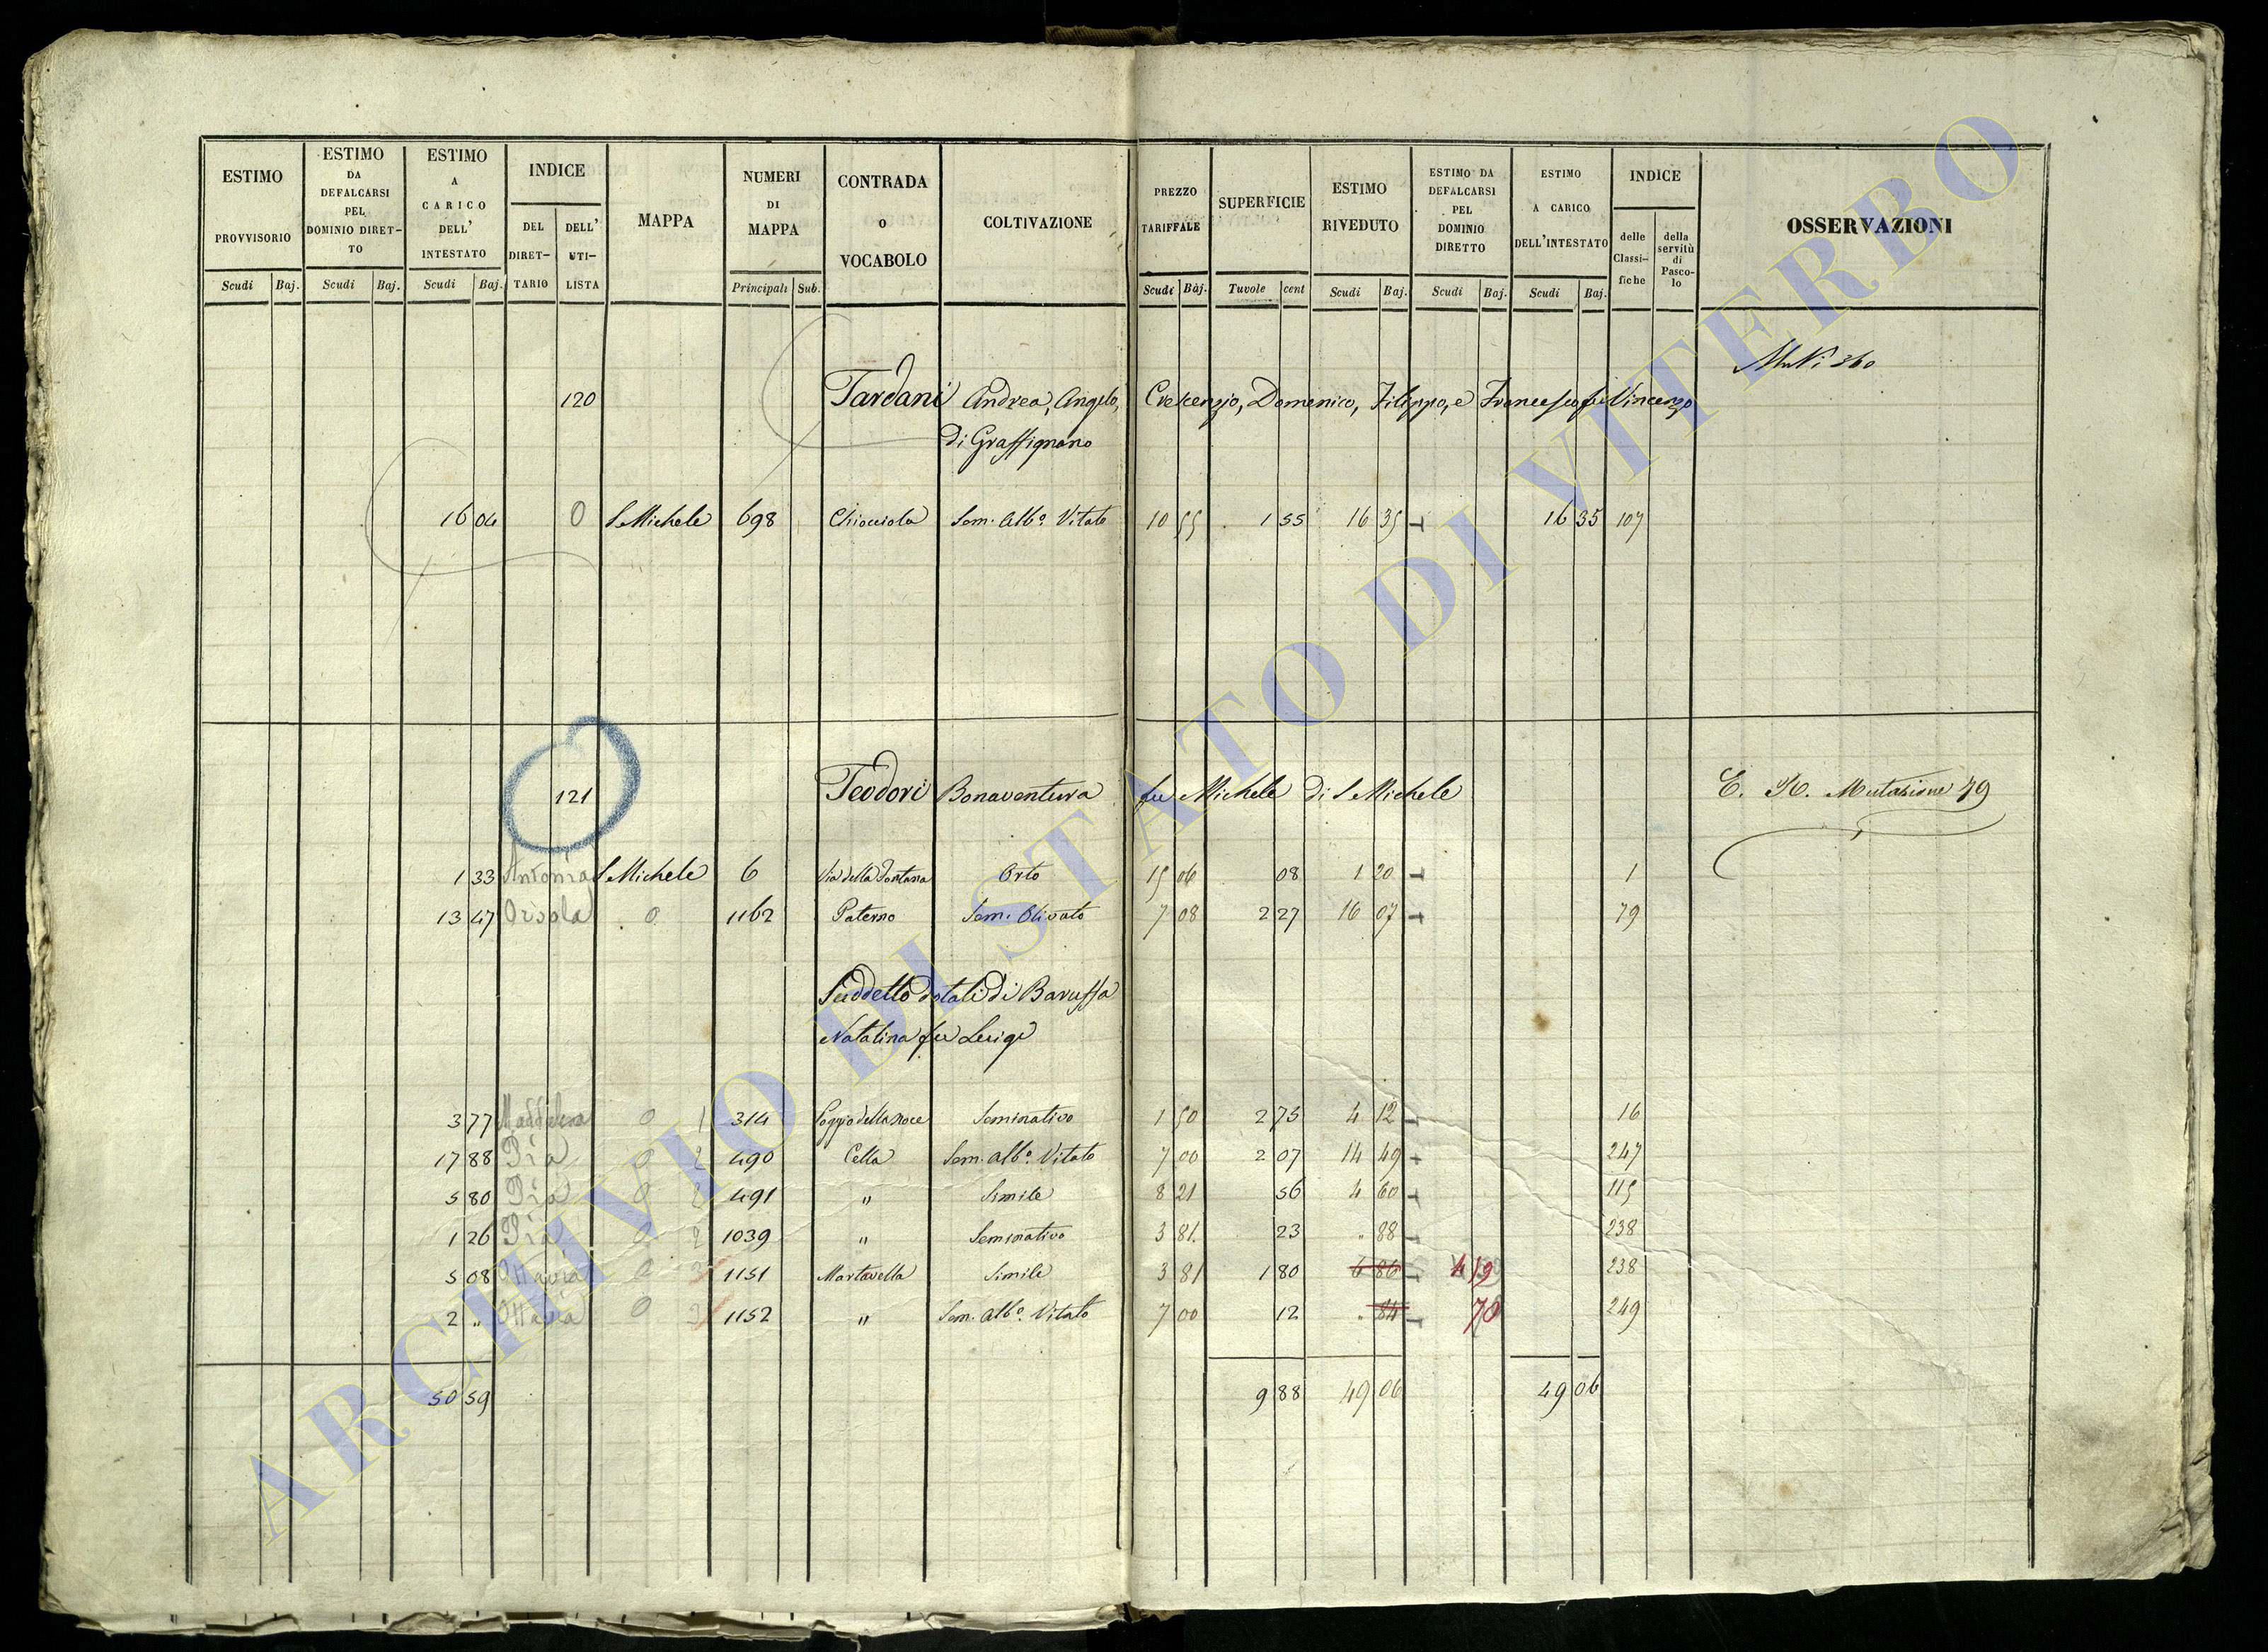 ESTIMO PROVVISORIO
ESTIMO DA DEFALCARSI PEL DOMINIO DIRET-TO
ESTIMO A CARICO DELL' INTESTATO
INDICE
DEL DIRET-TARIO
DELL' UTI-LISTA
MAPPA
NUMERI DI MAPPA
CONTRADA o VOCABOLO
COLTIVAZIONE
PREZZO TARIFFALE
SUPERFICIE
ESTIMO RIVEDUTO
ESTIMO DA DEFALCARSI PEL DOMINIO DIRETTO
ESTIMO A CARICO DELL'INTESTATO
INDICE
delle Classi-fiche
della servitù di Pasco-lo
OSSERVAZIONI
Scudi Baj. Scudi Baj. Scudi Baj. Principali Sub. Scudi Baj. Tavole cent Scudi Baj. Scudi Baj. Scudi Baj.
360
120 Tardani Andrea, Angelo, Crescenzio, Domenico, Filippo, e Francesco fu Vincenzo
di Graffignano
16 04 0 S Michele 698 Chiocciola Sem. Alb.o Vitato 10 55 1 55 16 35 16 35 107
121 Teodori Bonaventura fu Michele di S Michele E. Mutazione 79
1 33 Antonia S Michele 6 Via della Fontana Orto 15 06 08 1 20 1
13 47 Orsola 0 1162 Paterno Sem. Olivato 7 08 2 27 16 07 79
Suddetto dotali di Baruffa
Natalina fu Luigi
3 77 Maddalena 0 1 314 Poggio della Noce Seminativo 1 50 2 75 4 12 16
17 88 Pia 0 2 490 Cella Sem. Alb.o Vitato 7 00 2 07 14 49 247
5 80 Pia 0 2 491 " Simile 8 21 56 4 60 115
1 26 Pia 0 2 1039 " Seminativo 3 81 23 " 88 238
5 08 Ottavia 0 3 1151 Martavella Simile 3 81 1 80 6 86 4 19 238
2 " Ottavia 0 3 1152 " Sem. Alb.o Vitato 7 00 12 " 84 70 249
50 59 9 88 49 06 49 06
ARCHIVIO DI STATO DI VITERBO